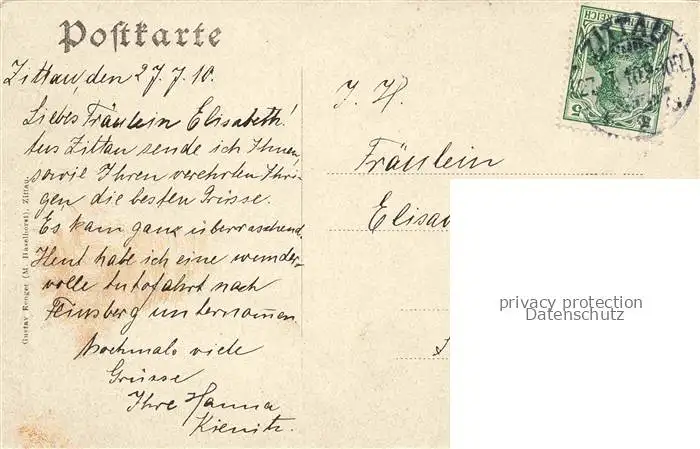 Postkarte
Zittau, den 27.7.10.
Liebes Fräulein Elisabeth!
Aus Zittau sende ich Ihnen,
sowie Ihren verehrten Ihri-
gen die besten Grüsse.
Es kam ganz überraschend.
Heut habe ich eine wunder-
volle Autofahrt nach
unternommen.
Nochmals viele
Grüsse
Ihre Hanna
Gustav Renger (M. Haselhorst), Zittau.
Fräulein
Elisa
DEUTSCHES REICH
5 5
ZITTAU
27. 7. 10.
privacy protection
Datenschutz